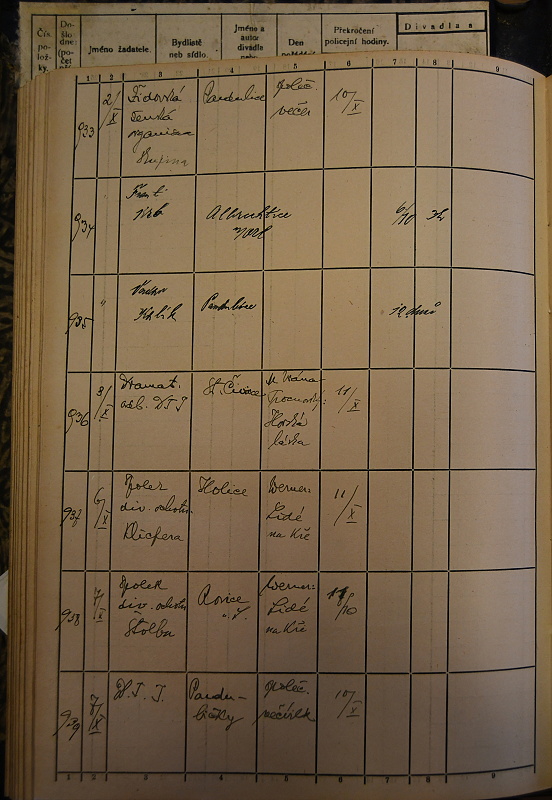 Čís.
po-
lož-
ky.
Do-
šlo
dne:
(po-
čet
Jméno žadatele.
Bydliště
neb sídlo.
Jméno a
autor
divadla
nebo
Den
Překročení
policejní hodiny.
Divadla a
1 2 3 4 5 6 7 8 9
933 2/X Židovská Pardubice společ. 10/X
ženská večer
organisace
Skupina
934 Frant. Albrechtice 6/10 3h
935 " Pardubice 12 dnů
936 3/X Dramat. St. Čívice 11/X
odb. DTJ Horská
láska
937 6/X Spolek Holice Werner: 11/X
div. ochotn. Lidé
Klicpera na kře
938 7/X Spolek Werner:
div. ochotn. Lidé /10
Štolba na kře
939 7/X D.T.J. Pardu- společ. 10/X
bičky večírek
1 2 3 4 5 6 7 8 9